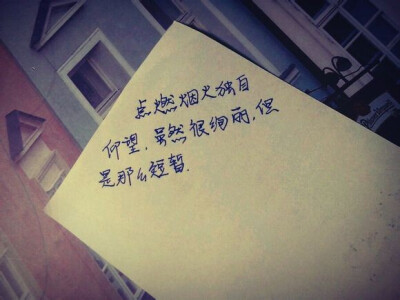 点燃烟火独自
仰望，虽然很绚丽，但
是那么短暂.